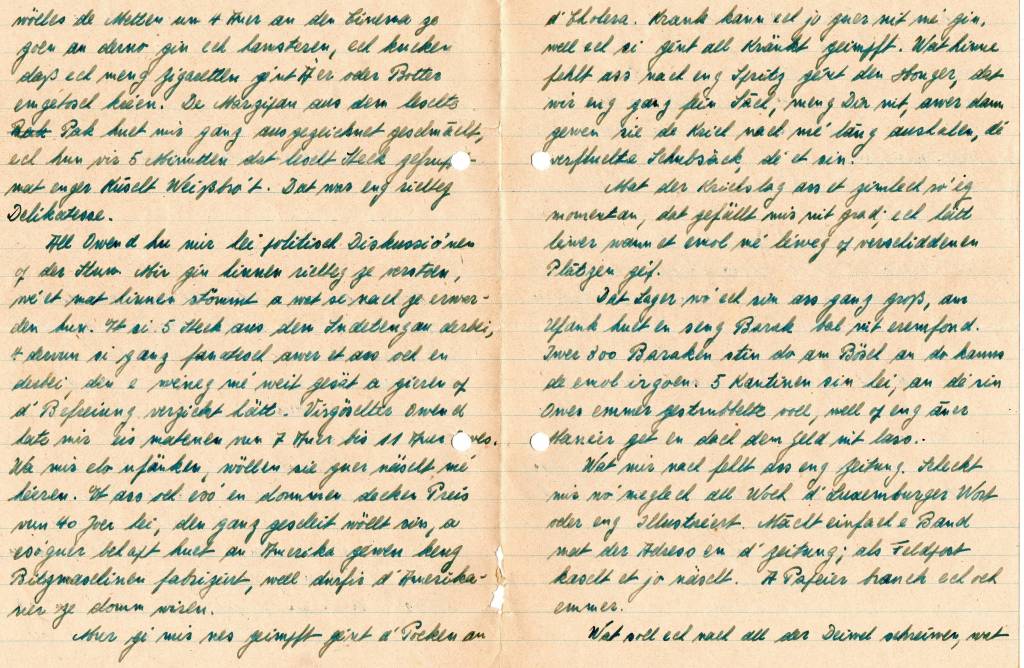 wölles de Metten um 4 Auer an den Cinema ze
goen an derno gin ech hamsteren, ech kucken
daß ech meng Zigaretten gént Äer oder Botter
emgetosch kréien. De Margipan aus dem leschte
Pak huet mir ganz ausgezeichnet geschmächt,
ech hun vir 5 Minutten dat lescht Steck
mat enger Kuscht Weißbró't. Dat war eng richteg
Delikatesse.
All Owend hu mir lei politisch Diskussiónen
of der Stuw. Mir gin hinnen richteg ze verstoen,
wé et mat hinnen stömmt a wat se nach ze erwar-
den hun. Et si 5 Steck aus dem Sudetengau derbei,
4 dervun si ganz fanatisch awer et ass och en
derbei, den e weneg mé weit gesät a gieren of
d'Befreiung verzicht hätt. Virgöschter Owend
hate mir eis matenen vun 7 Auer bis 11 Auer
Wa mir elo ufänken, wöllen sie guer näischt mé
héieren. Et ass och esó en dommen decken Preis
vun 40 Joer lei, den ganz gescheit wöllt sin, a
esóguer behapt huet an Amerika gewen keng
Bitzmaschinen fabrizéiert, well dorfir d'Amerika-
ner ze domm wieren.
Muer gi mir nes geimpft gént d'Pocken an
d'Cholera. Krank kann ech jo guer nit mé gin,
well ech si gént all Kränkt geimpft. Wat hinne
fehlt ass nach eng Spritz gént den Honger, dat
wir eng ganz fein Sach; meng Dir nit, awer dann
gewen sie de Krich nach mé lang aushalen, dé
verfluchte Schubsäck, dé et sin.
Mat der Krichslag ass et zimlech ró'eg
momentan, dat gefällt mir nit grad; ech hätt
léiwer wann et emol mé léiweg of verschiddenen
Plätzen géif.
Dat Lager wó ech sin ass ganz groß, am
Ufank huet en seng Barak bal nit eremfond.
Iwer 300 Baraken stin do an Bösch an do kanns
de emol irgoen. 5 Kantinen sin lei, an dé sin
Owes emmer gestrubbelte voll, well of eng aner
Manéier get en dach dem Geld nit lass..
Wat mir nach fehlt ass eng Zeitung. Scheckt
mir wó meglech all Woch d'Luxemburger Wort
oder eng Illustréiert. Mächt einfach e Band
mat der Adress em d'Zeitung; als Feldpost
kascht et jo näischt. A Pafeier brauch ech och
emmer.
Wat soll ech nach all der Deiwel schreiwen, wat